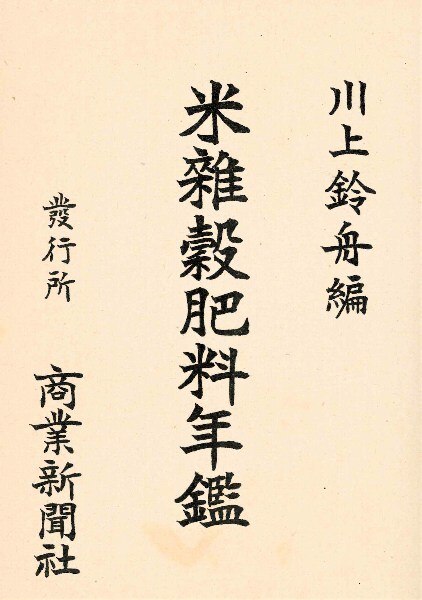 川上鈴舟編
米雜穀肥料年鑑
發行所
商業新聞社